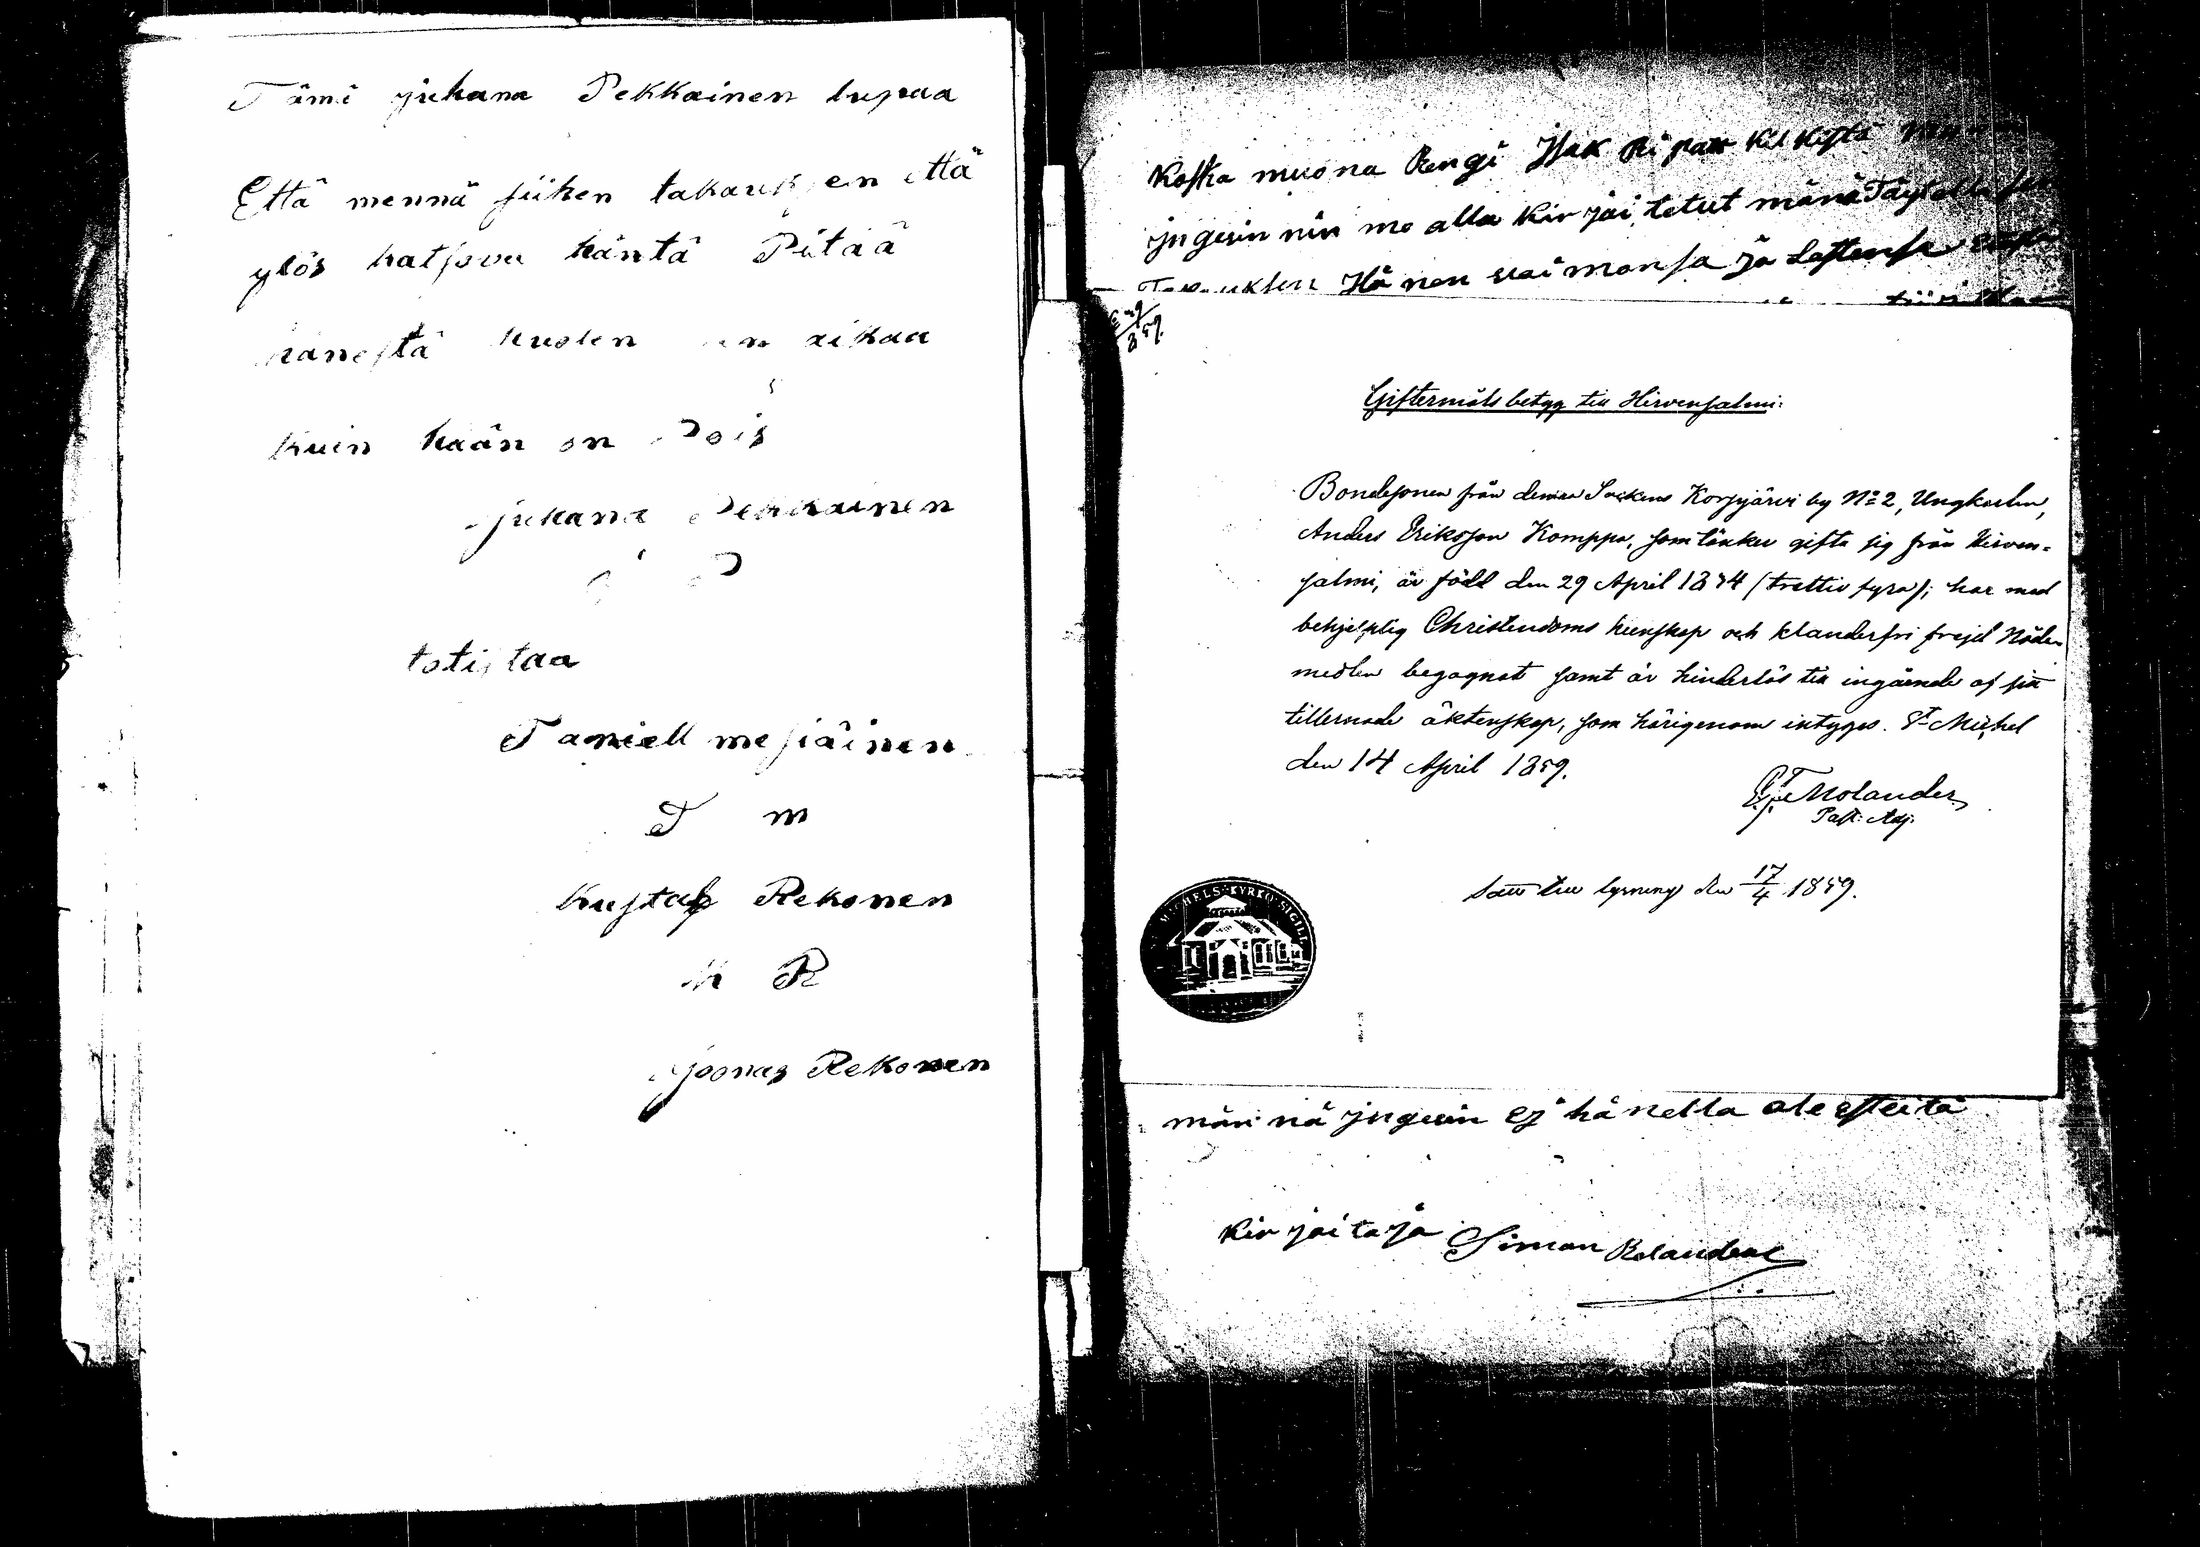 Tämä juhana Pekkainen lupaa
Että mennä siihen takauksen että
ylös katsova häntä Pitää
hänestä huolen aikaa
kuin hään on Pois
juhana Pekkainen
J P
totistaa
Taniell mesiäinen
T m
kustaf Rekonen
k R
joonas Rekonen
Koska muona Rengi Isak
jngerin nin me alla kirjai,tetut mänä
Takauksen Hänen vaimonsa ja Lastensa
Giftermåls betyg till Hirvensalmi:
Bondesonen från denna Sockens Korpijärvi by No 2, Ungkarlen,
Anders Eriksson Komppa, som tänker gifta sig från Hirven-
salmi, är född den 29 April 1834 (trettio fyra); har med
behjelplig Christendoms kunskap och klanderfri frejd Nåde-
medlen begagnat samt är hinderlös till ingående af sitt
tillernade äktenskap, som härigenom intygas. St Michel
den 14 April 1859.
Molander
Past. Adj.
till lysning den 17/4 1859.
MICHELS KYRKO SIGILL
männä jngerin ej hänella ole esteitä
kirjaitaja Simon Relander